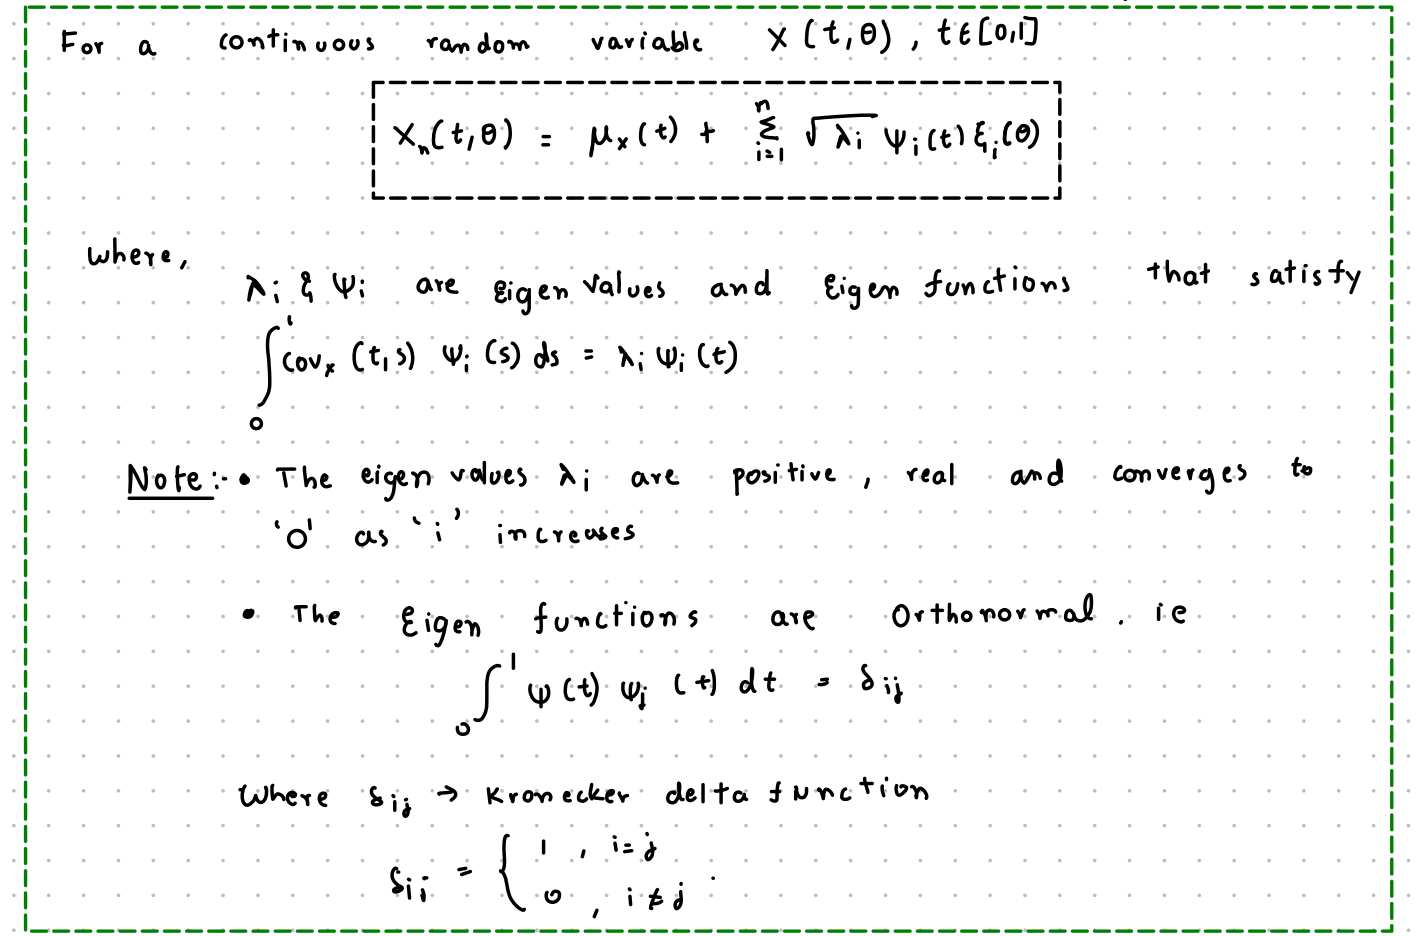 For a continuous random variable X(t,θ), t∈[0,1]
Xₙ(t,θ) = μₓ(t) + ∑ᵢ₌₁ⁿ √λᵢ ψᵢ(t) ξᵢ(θ)
where,
λᵢ & ψᵢ are Eigen values and Eigen functions that satisfy
∫₀¹ covₓ (t,s) ψᵢ(s) ds = λᵢ ψᵢ(t)
Note:- • The eigen values λᵢ are positive, real and converges to
'0' as 'i' increases
• The Eigen functions are Orthonormal. ie
∫₀¹ ψ(t) ψⱼ(t) dt = δᵢⱼ
Where δᵢⱼ → Kronecker delta function
δᵢⱼ = { 1 , i=j
0 , i≠j .